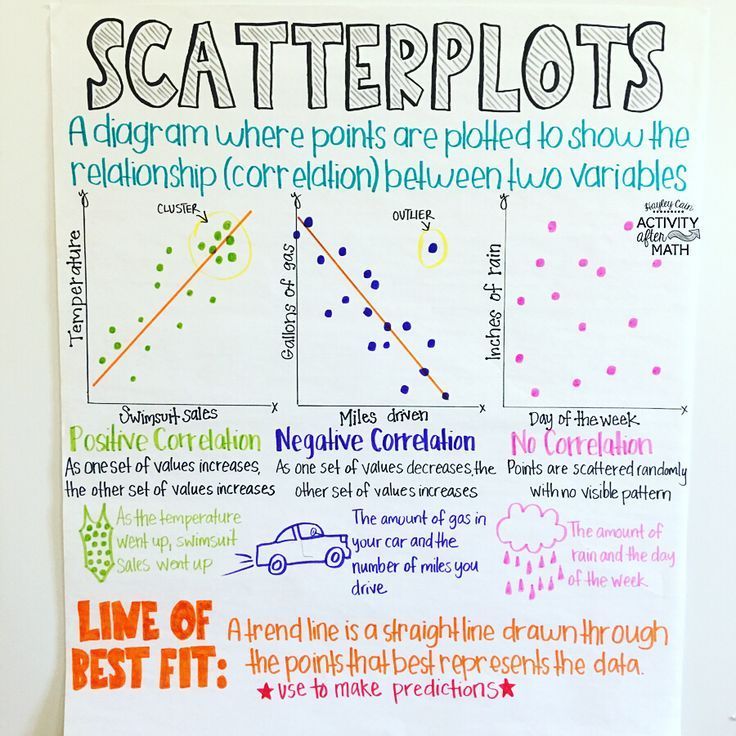 SCATTERPLOTS
A diagram where points are plotted to show the
relationship (correlation) between two variables
Hayley Cain
ACTIVITY
after
MATH
y
CLUSTER
Temperature
Swimsuit sales
x
y
OUTLIER
Gallons of gas
Miles driven
x
y
Inches of rain
Day of the week
x
Positive Correlation
As one set of values increases,
the other set of values increases
As the temperature
went up, swimsuit
sales went up
Negative Correlation
As one set of values decreases, the
other set of values increases
The amount of gas in
your car and the
number of miles you
drive
No Correlation
Points are scattered randomly
with no visible pattern
The amount of
rain and the day
of the week
LINE OF
BEST FIT:
A trend line is a straight line drawn through
the points that best represents the data.
★use to make predictions★